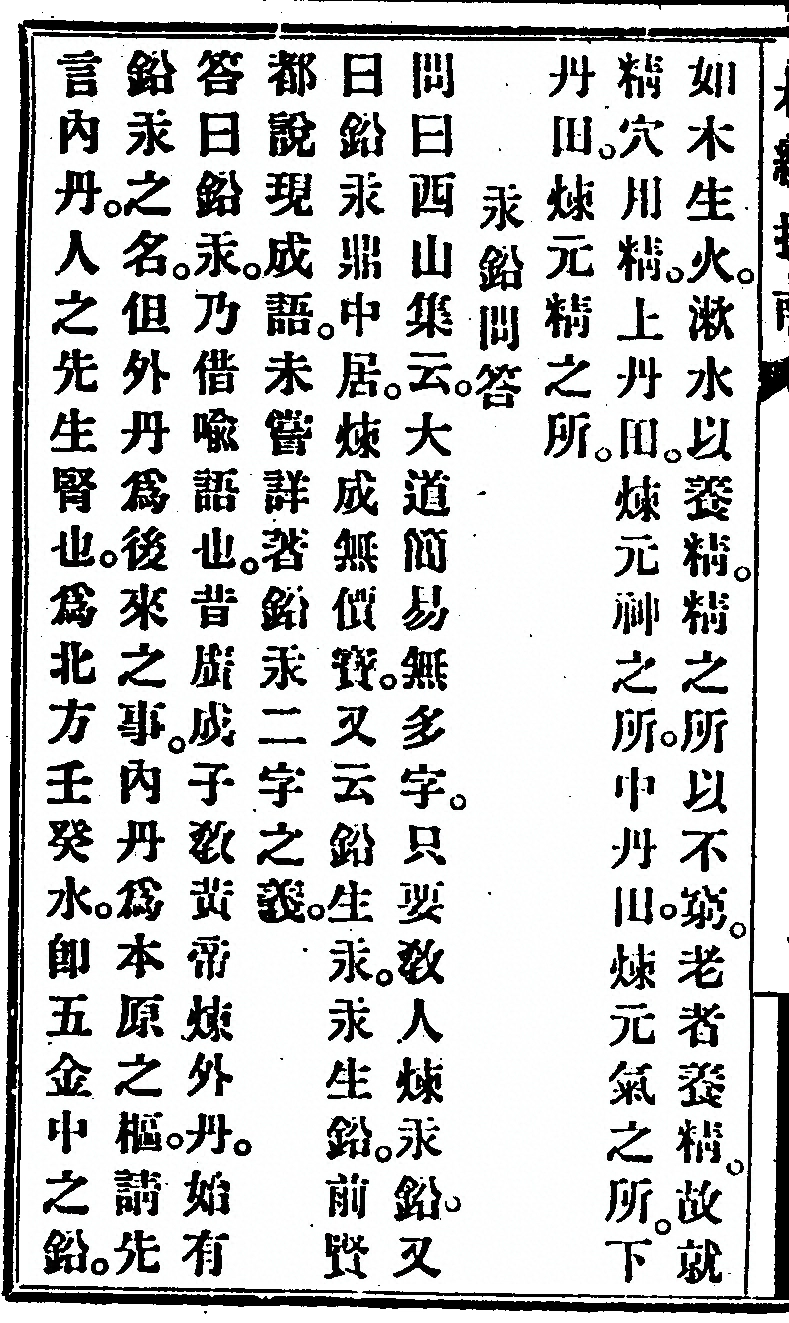 如木生火。漱水以養精。精之所以不窮。老者養精。故就
精穴用精。上丹田。煉元神之所。中丹田。煉元氣之所。下
丹田。煉元精之所。
汞鉛問答
問曰西山集云。大道簡易無多字。只要敎人煉汞鉛。又
曰鉛汞鼎中居。煉成無價寶。又云鉛生汞。汞生鉛。前賢
都說現成語。未嘗詳著鉛汞二字之義。
答曰鉛汞。乃借喻語也。昔廣成子敎黃帝煉外丹。始有
鉛汞之名。但外丹爲後來之事。內丹爲本原之樞。請先
言內丹。人之先生腎也。爲北方壬癸水。卽五金中之鉛。